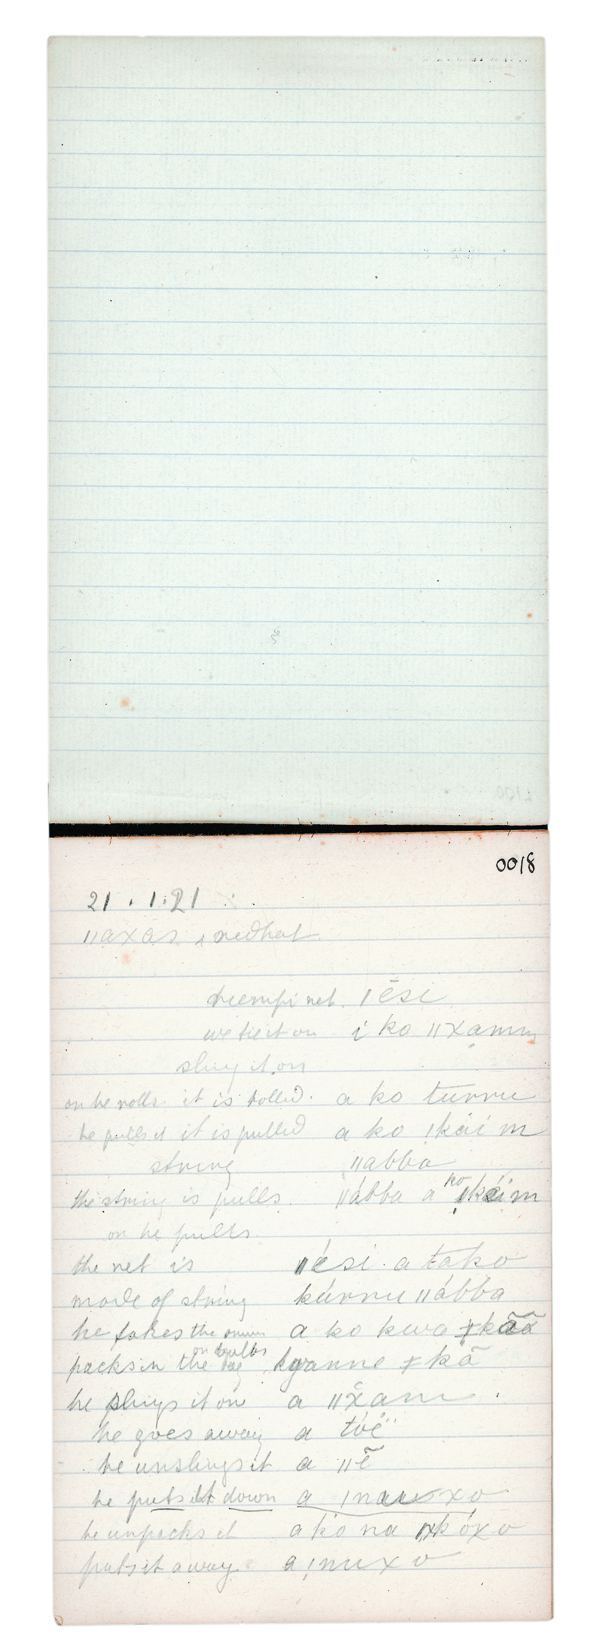 0018
21.1.21
ǁaxas, redhat
net. ǀēsi
we tie it on i ko ǁxamm
sling it on
or he rolls. it is rolled. a ko turru
he pulls it it is pulled a ko ǃkáim
string ǁabba
the string is pulls. ǁábba a ko ǃkáim
or he pulls.
the net is ǁési. a tako
made of string kúrru ǁábba
he takes the onion a ko kwa ǂkãã
packs in the or bulbs bag ǂkã
he slings it on a ǁxam.
he goes away a toë
he unslings it a ǁẽ
he puts it down a ǀnauxo
he unpacks it a ko na ǀkóxo
puts it away. a ǃnuxo